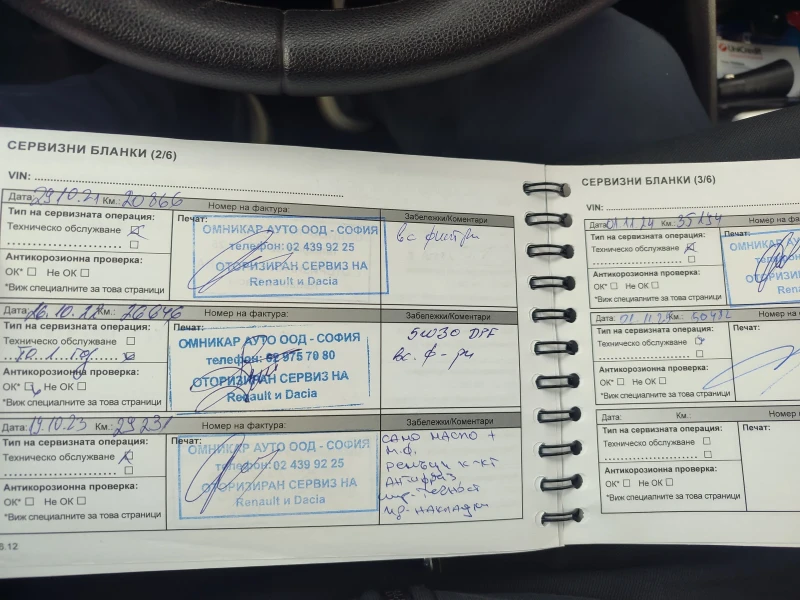 СЕРВИЗНИ БЛАНКИ (2/6)
VIN:
Дата: 29.10.21 Км.: 20866
Номер на фактура:
Тип на сервизната операция:
Техническо обслужване
Антикорозионна проверка:
ОК* Не ОК
*Виж специалните за това страници
Печат:
ОМНИКАР АУТО ООД - СОФИЯ
телефон: 02 439 92 25
ОТОРИЗИРАН СЕРВИЗ НА
Renault и Dacia
Забележки/Коментари
вс филтри
Дата: 26.10.22 Км.: 26646
Номер на фактура:
Тип на сервизната операция:
Техническо обслужване
Антикорозионна проверка:
ОК* Не ОК
*Виж специалните за това страници
Печат:
ОМНИКАР АУТО ООД - СОФИЯ
телефон: 02 975 70 80
ОТОРИЗИРАН СЕРВИЗ НА
Renault и Dacia
Забележки/Коментари
5W30 DPF
вс. ф-ри
Дата: 19.10.23 Км.: 29231
Номер на фактура:
Тип на сервизната операция:
Техническо обслужване
Антикорозионна проверка:
ОК* Не ОК
*Виж специалните за това страници
Печат:
ОМНИКАР АУТО ООД - СОФИЯ
телефон: 02 439 92 25
ОТОРИЗИРАН СЕРВИЗ НА
Renault и Dacia
Забележки/Коментари
САМО МАСЛО +
М.Ф.
РЕМЪЦИ К-КТ
АНТИФРИЗ
пр. накладки
6.12
СЕРВИЗНИ БЛАНКИ (3/6)
VIN:
Дата: 01.11.24 Км.: 35194
Номер на фа
Тип на сервизната операция:
Техническо обслужване
Антикорозионна проверка:
ОК* Не ОК
*Виж специалните за това страници
Печат:
ОМНИКАР
телефо
ОТОРИЗ
Rena
Дата: Км.: 50482
Номер на ф
Тип на сервизната операция:
Техническо обслужване
Антикорозионна проверка:
ОК* Не ОК
*Виж специалните за това страници
Печат:
Дата: Км.:
Номер н
Тип на сервизната операция:
Техническо обслужване
Антикорозионна проверка:
ОК* Не ОК
*Виж специалните за това страници
Печат:
UniCredit